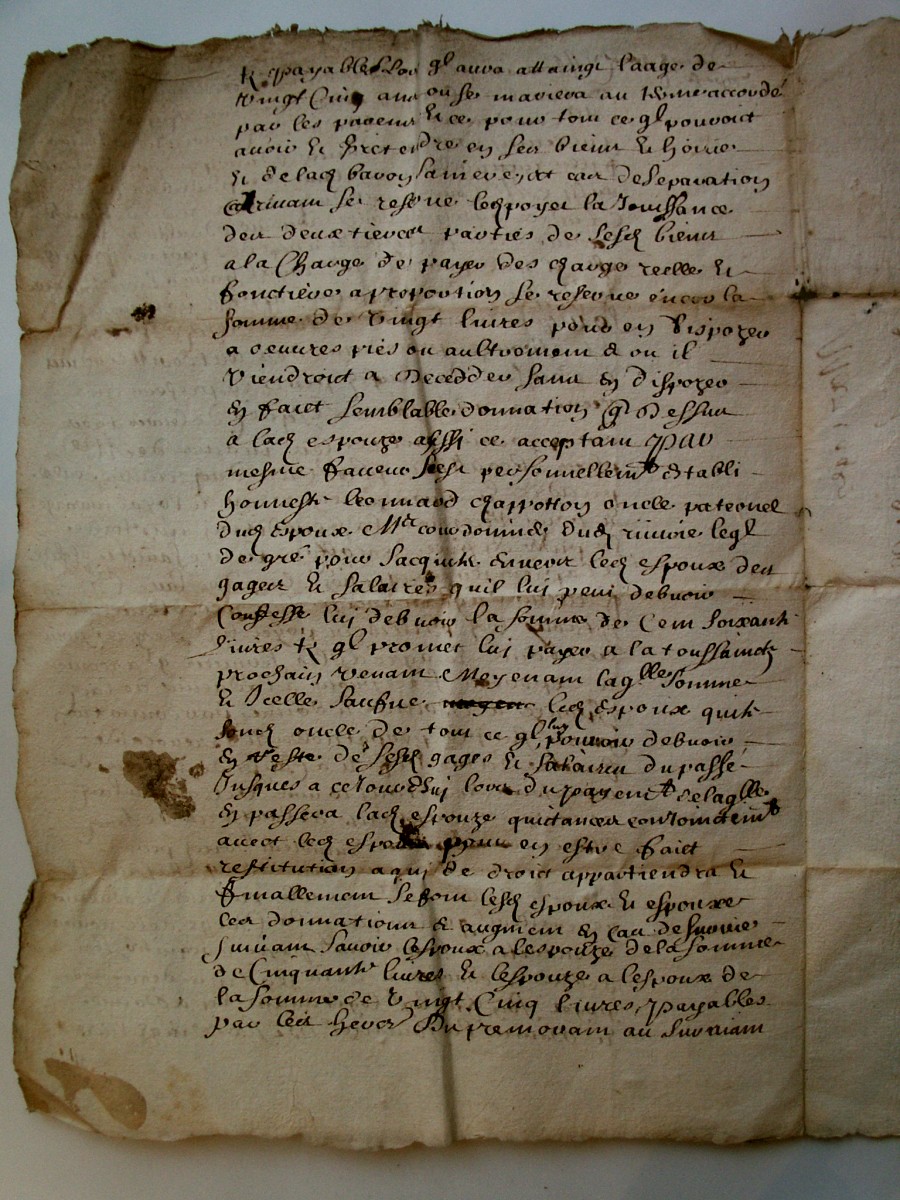 & payables lors ql aura attaingt laage de
vingt Cinq ans ou se mariera au terme accordé
par les parens & ce pour tout ce ql pouvoict
avoir & pretendre en ses biens & hoirie
& de lad baron advenent cas de separation
arrivant se reserve led poyet la Jouissance
des deux tierces parties de sesd biens
a la Charge de payer des charges reelles &
foncières a proportion se reserve encor la
somme de vingt livres pour en disposer
a oeuvres piés ou aultrement & ou il
viendroit a decedder sans en disposer
en faict semblable donnation q dessus
à lad espouze aussi ce acceptant par
mesme faveur sest personnellemt establi
honneste leonnard chappotton oncle paternel
dud espoux Mtre cordonnier dud leql
de gré pour sacquiter envers led espoux des
gages & salaires quil lui peut debvoir
Confesse lui debvoir la somme de Cent soixante
livres & ql promet lui payer a la toussainctz
prochain venant Moyenant laqlle somme
& Icelle saufve led espoux quitte
sond oncle de tout ce ql luy pouvoir debvoir
en reste de sesd gages & salaires du passé
Jusques a ce Jourdhuj lors du payemt de laqlle
en passera lad espouze quictances conjointemt
avect led espoux pour en estre faict
restitution a qui de droict appartiendra &
finallement se font lesd espoux & espouze
les donnations & augment en cas de survie
suivant savoir lespoux a lespouze de la somme
de Cinquante livres & lespouze a lespoux de
la somme de vingt Cinq livres, payables
par les hers du premorant au survivant